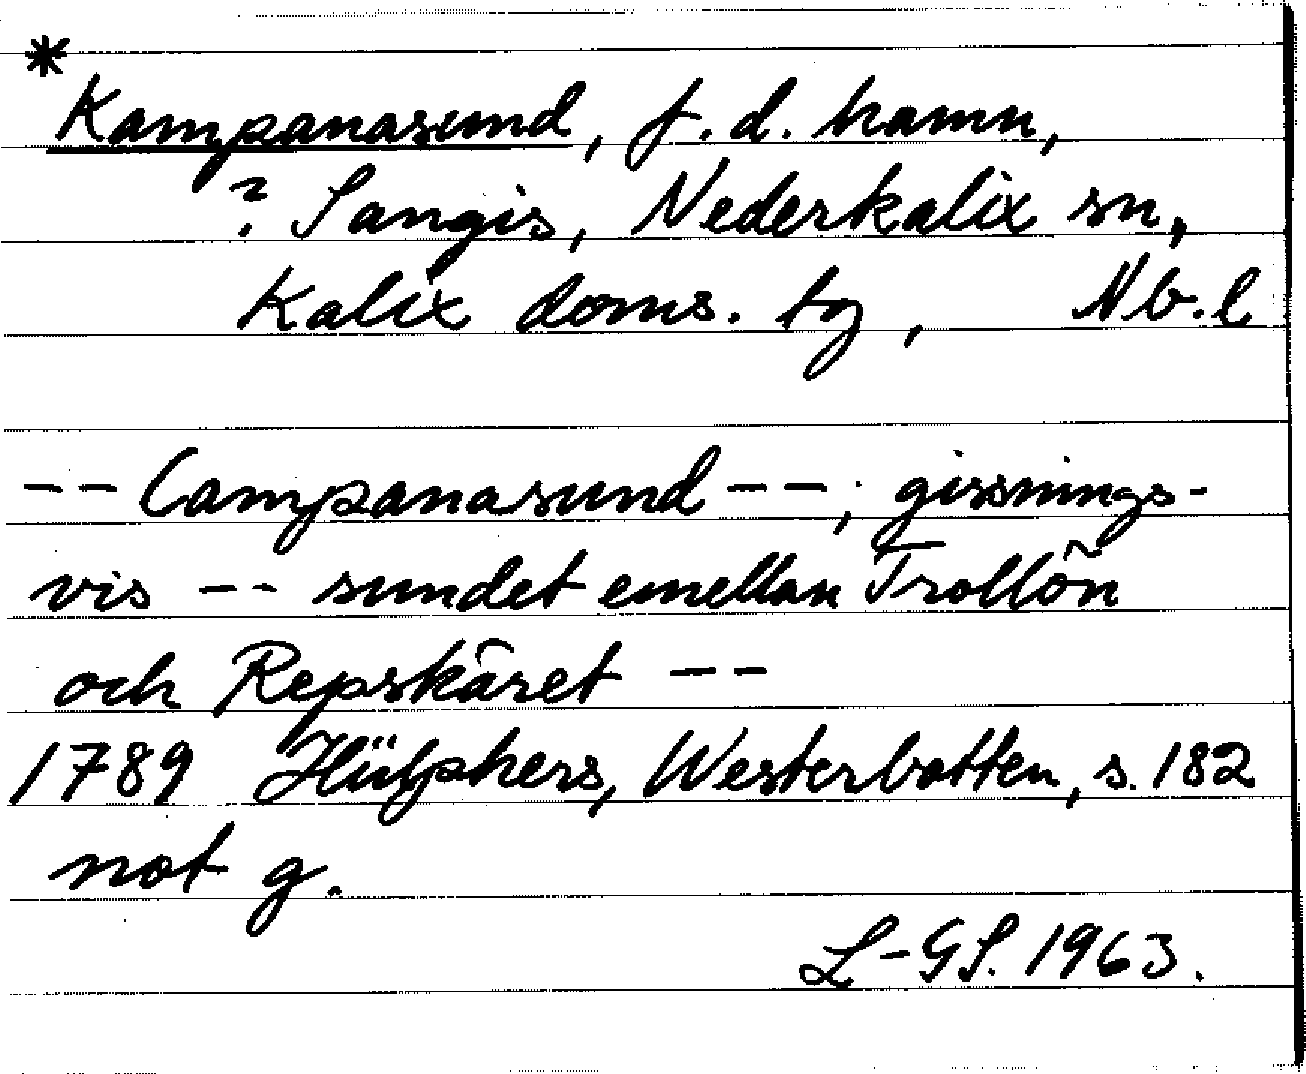 *
Kampanasund, f.d. hamn,
? Sangis, Nederkalix sn,
Kalix doms. tg, Nb.l
-- Campanasund --; gissnings-
vis -- sundet emellan Trollön
och Repskäret --
1789 Hülphers, Westerbotten, s. 182
not g.
L-GS. 1963.